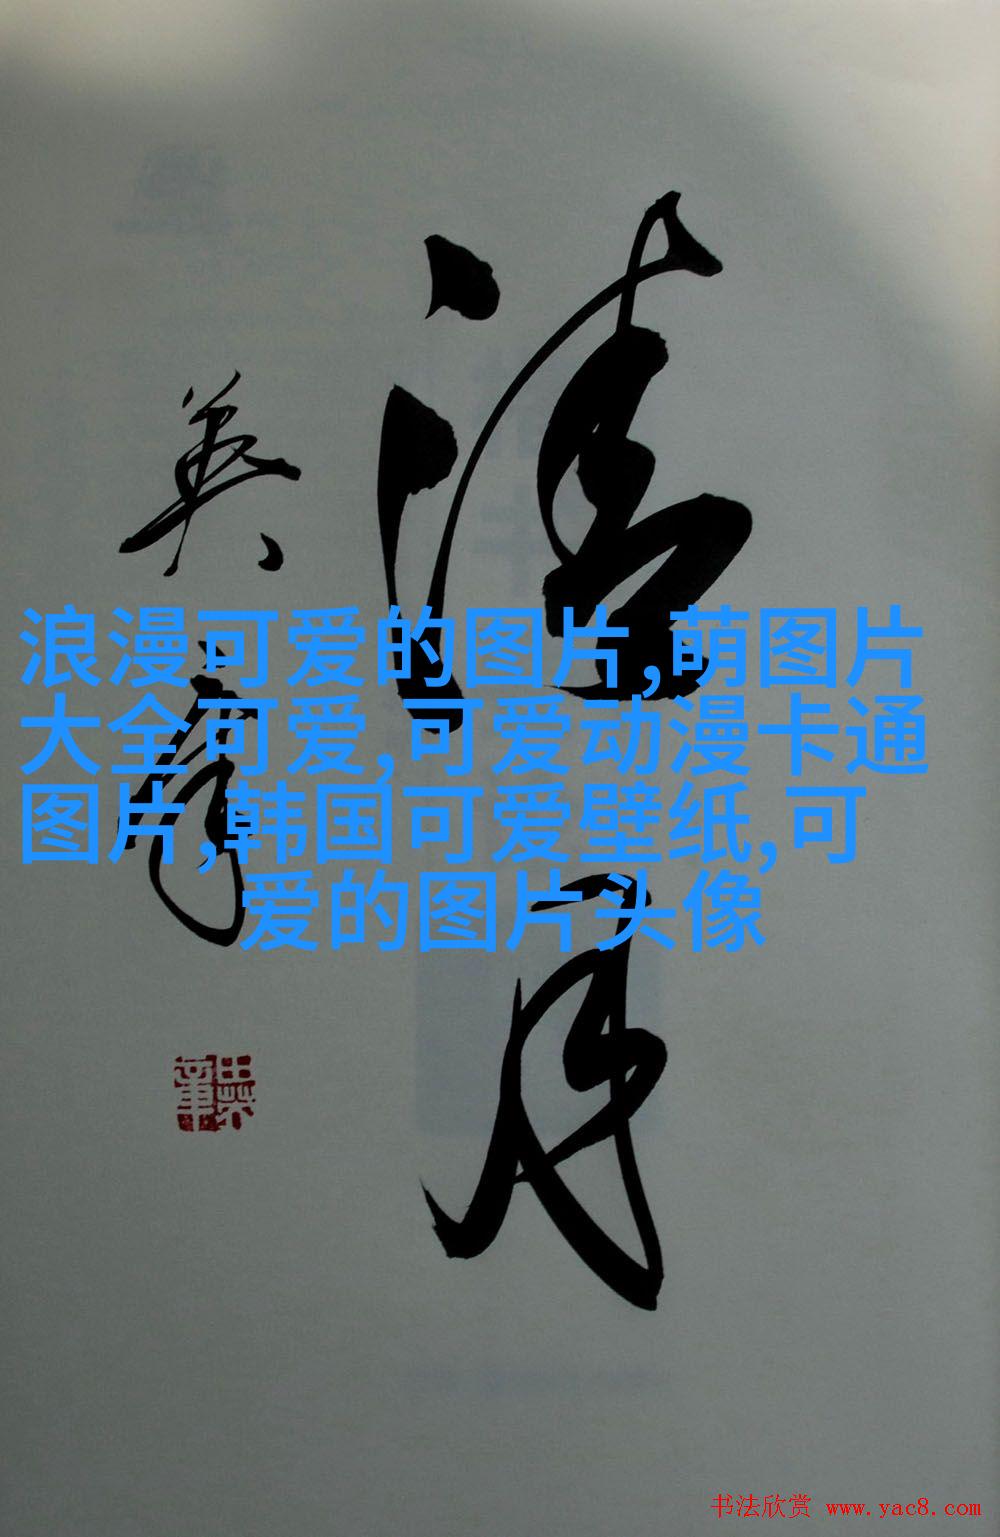 清月
英章
田英章
浪漫可爱的图片,萌图片
大全可爱,可爱动漫卡通
图片,韩国可爱壁纸,可
爱的图片头像
书法欣赏 www.yac8.com